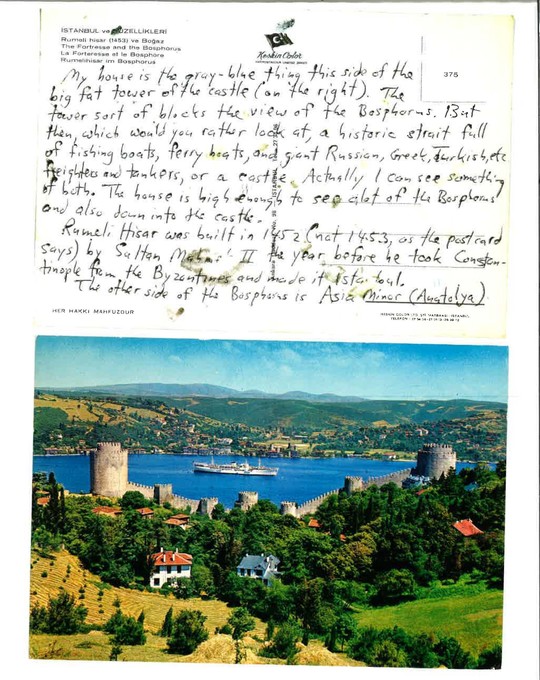 İSTANBUL ve GÜZELLİKLERİ
Rumeli hisar (1453) ve Boğaz
The Fortresse and the Bosphorus
La Forteresse et le Bosphore
Rumelihisar im Bosphorus
Keskin Color
375
My house is the gray-blue thing this side of the
big fat tower of the castle (on the right). The
tower sort of blocks the view of the Bosphorus. But
then, which would you rather look at, a historic strait full
of fishing boats, ferry boats, and giant Russian, Greek, Turkish, etc
freighters and tankers, or a castle. Actually I can see something
of both. The house is high enough to see alot of the Bosphorus
and also down into the castle.
Rumeli Hisar was built in 1452 (not 1453, as the postcard
says) by Sultan II the year before he took Constan-
tinople from the Byzantines and made it Istanbul.
The other side of the Bosphorus is Asia Minor (Anatolya)
HER HAKKI MAHFUZDUR